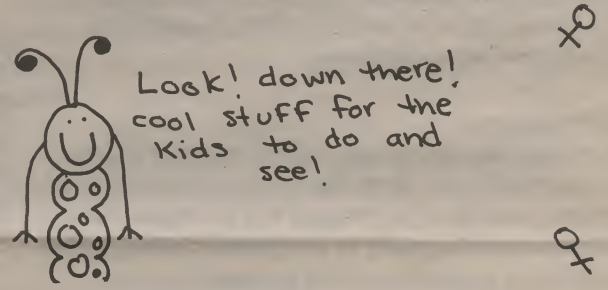 Look! down there!
cool stuff for the
kids to do and
see!